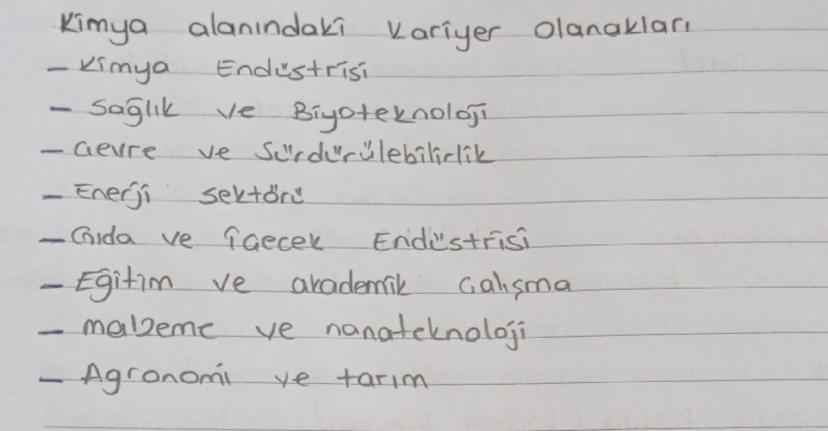 Kimya alanındaki Kariyer Olanakları
- Kimya Endüstrisi
- Sağlık ve Biyoteknoloji
- Çevre ve Sürdürülebilirlik
- Enerji sektörü
- Gıda ve içecek Endüstrisi
- Eğitim ve akademik çalışma
- malzeme ve nanateknoloji
- Agronomi ve tarım